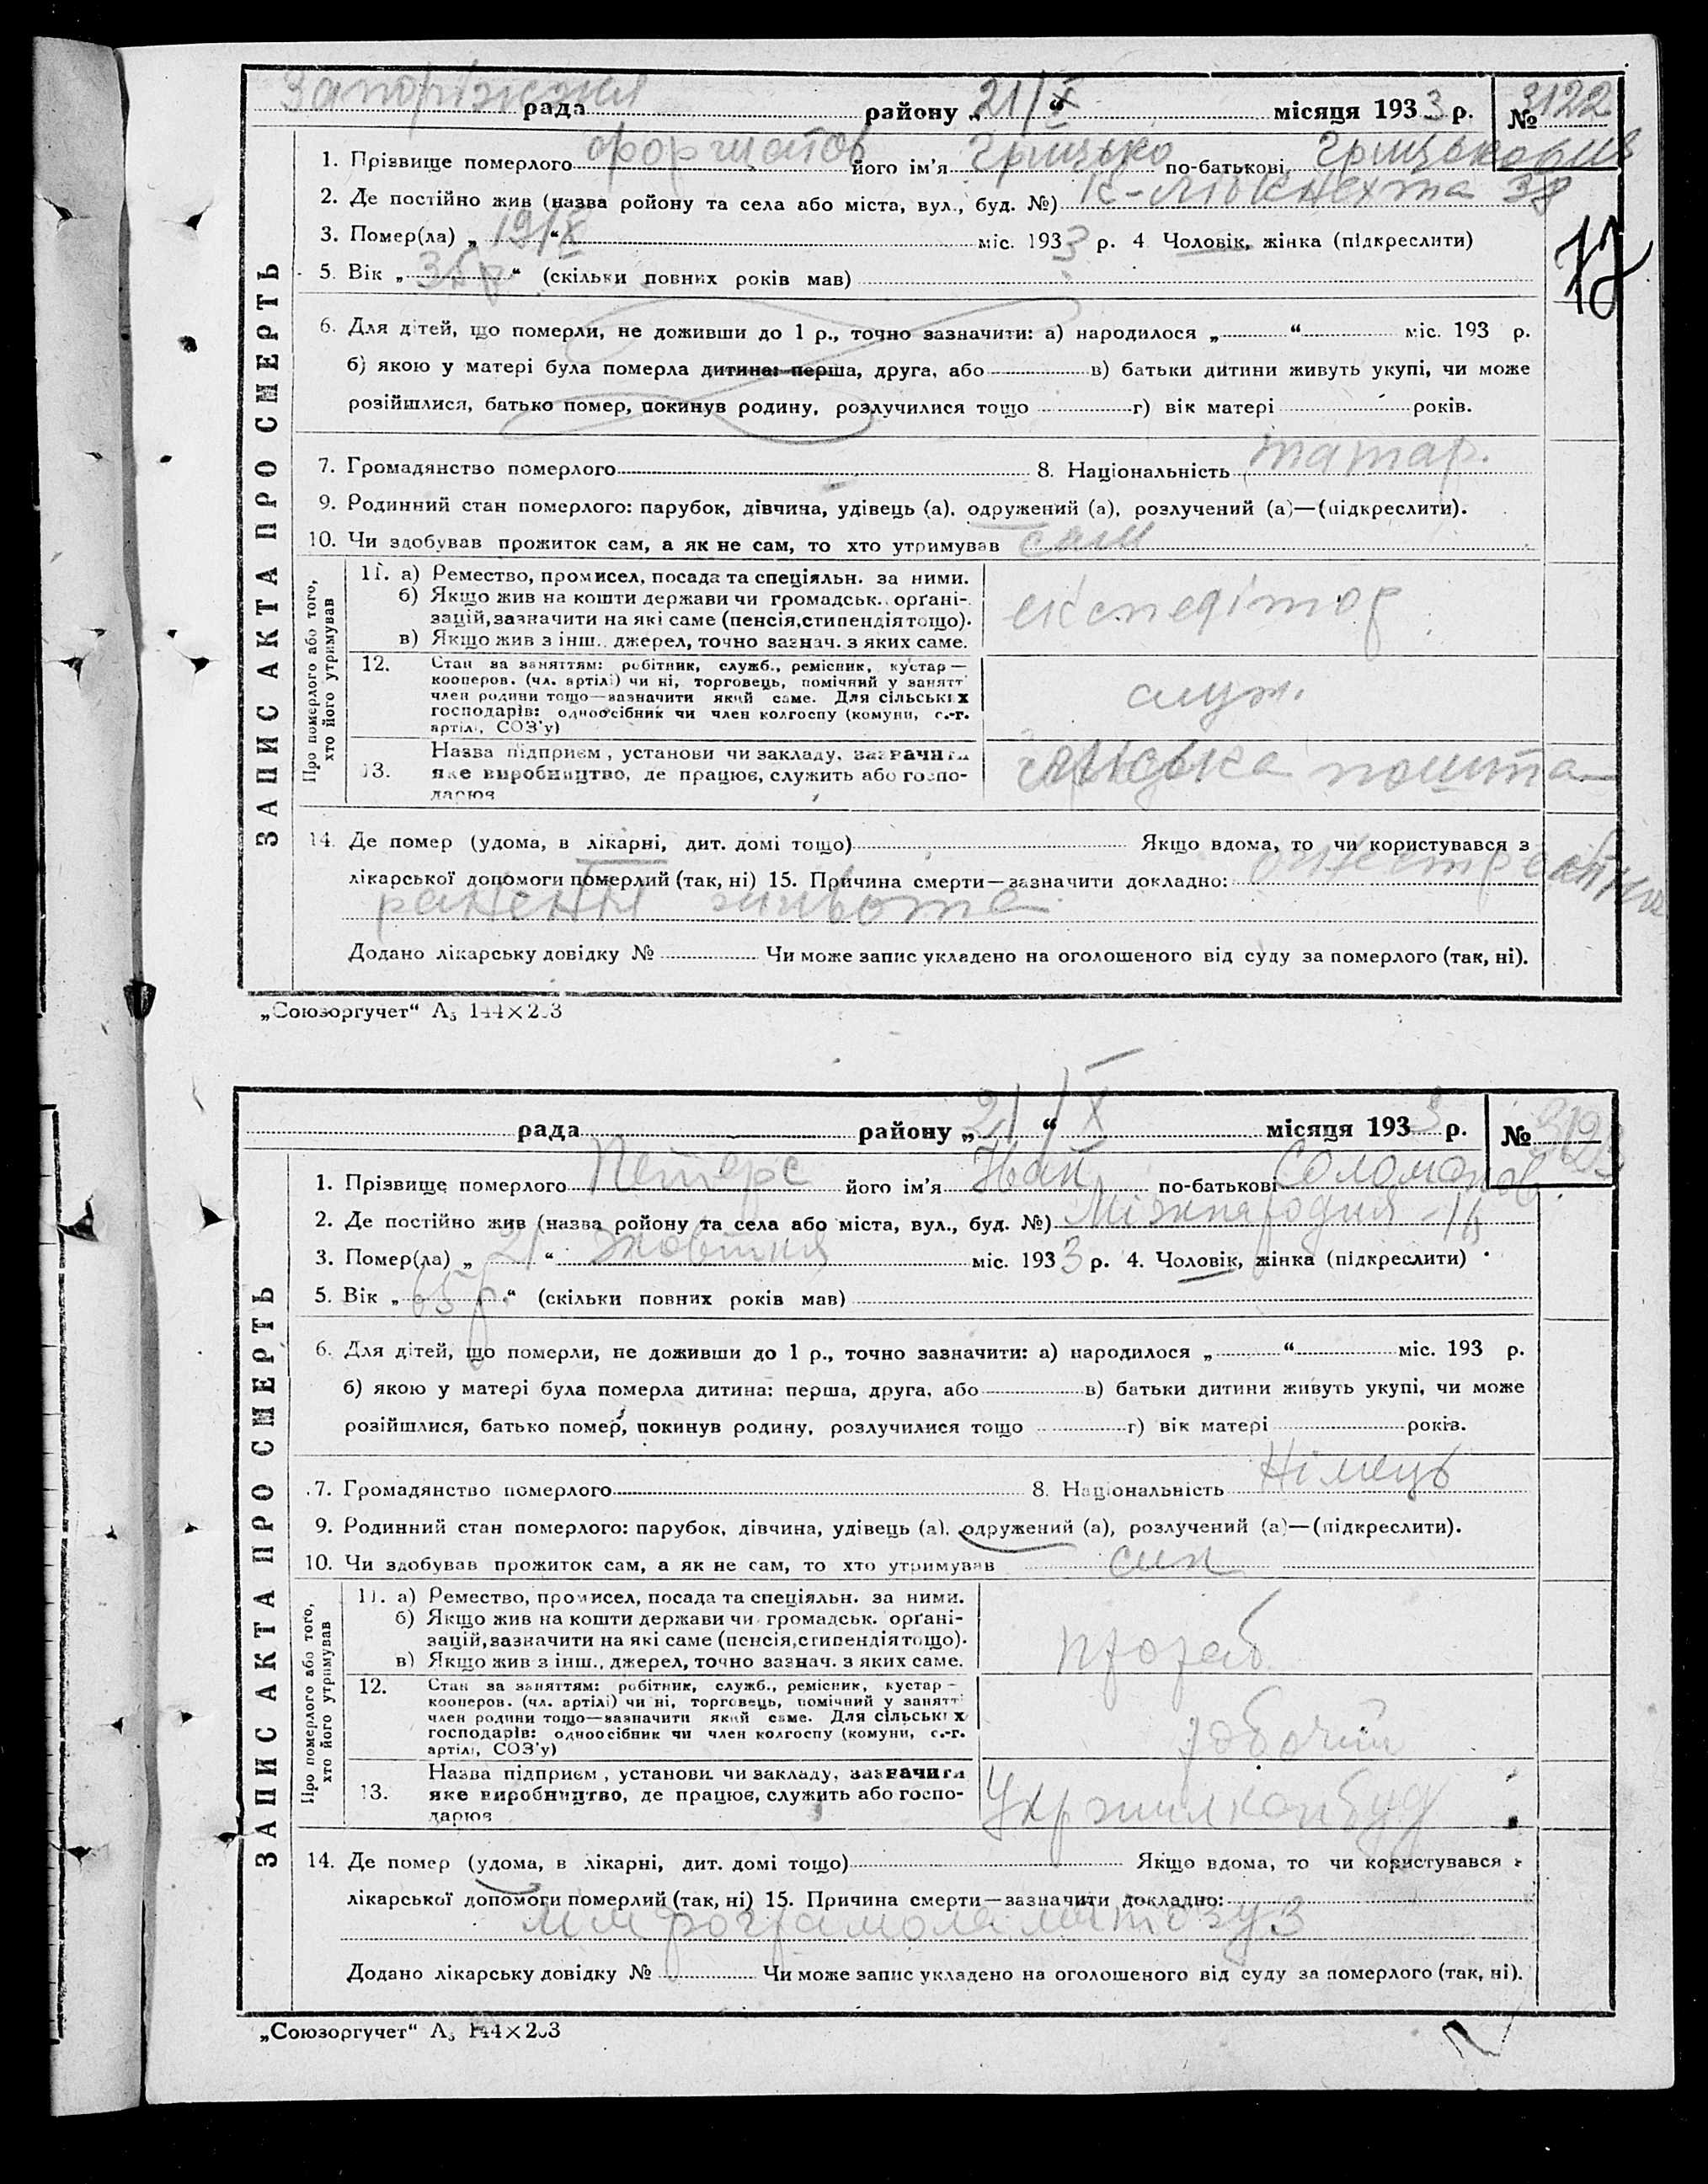 Запоріжжя рада району „21/X“ місяця 1933 р. № 3122
ЗАПИС АКТА ПРО СМЕРТЬ
1. Прізвище померлого його ім'я Грицько по-батькові
2. Де постійно жив (назва ройону та села або міста, вул., буд. №) К-Лібкнехта 38
3. Помер(ла) „19/X“ міс. 1933 р. 4 Чоловік, жінка (підкреслити)
17
5. Вік „ “ (скільки повних років мав)
6. Для дітей, що померли, не доживши до 1 р., точно зазначити: а) народилося „ “ міс. 193 р.
б) якою у матері була померла дитина: перша, друга, або в) батьки дитини живуть укупі, чи може
розійшлися, батько помер, покинув родину, розлучилися тощо г) вік матері років.
7. Громадянство померлого 8. Національність татар.
9. Родинний стан померлого: парубок, дівчина, удівець (а), одружений (а), розлучений (а)—(підкреслити).
10. Чи здобував прожиток сам, а як не сам, то хто утримував сам
Про померлого або того, хто його утримував
11. а) Ремество, промисел, посада та спеціяльн. за ними.
б) Якщо жив на кошти держави чи громадськ. орґані-
зацій, зазначити на які саме (пенсія, стипендія тощо).
в) Якщо жив з інш. джерел, точно зазнач. з яких саме.
експедітор
12. Стан за заняттям: робітник, служб., ремісник, кустар—
кооперов. (чл. артілі) чи ні, торговець, помічний у занятт
член родини тощо—зазначити який саме. Для сільських
господарів: одноосібник чи член колгоспу (комуни, с.-г.
артілі, СОЗ'у)
служ.
Назва підприєм, установи чи закладу, зазначити
13. яке виробництво, де працює, служить або госпо-
дарює
пошта
14. Де помер (удома, в лікарні, дит. домі тощо) Якщо вдома, то чи користувався з
лікарської допомоги померлий (так, ні) 15. Причина смерти—зазначити докладно: огнестрельное
ранення живота
Додано лікарську довідку № Чи може запис укладено на оголошеного від суду за померлого (так, ні).
„Союзоргучет“ А₅ 144×203
рада району „21/X“ місяця 1933 р. № 3123
ЗАПИС АКТА ПРО СМЕРТЬ
1. Прізвище померлого Петерс його ім'я Іван по-батькові Соломонов.
2. Де постійно жив (назва ройону та села або міста, вул., буд. №) Міжнародня
3. Помер(ла) „21“ жовтня міс. 1933 р. 4. Чоловік, жінка (підкреслити)
5. Вік „65 р.“ (скільки повних років мав)
6. Для дітей, що померли, не доживши до 1 р., точно зазначити: а) народилося „ “ міс. 193 р.
б) якою у матері була померла дитина: перша, друга, або в) батьки дитини живуть укупі, чи може
розійшлися, батько помер, покинув родину, розлучилися тощо г) вік матері років.
7. Громадянство померлого 8. Національність Німець
9. Родинний стан померлого: парубок, дівчина, удівець (а), одружений (а), розлучений (а)—(підкреслити).
10. Чи здобував прожиток сам, а як не сам, то хто утримував син
Про померлого або того, хто його утримував
11. а) Ремество, промисел, посада та спеціяльн. за ними.
б) Якщо жив на кошти держави чи громадськ. орґані-
зацій, зазначити на які саме (пенсія, стипендія тощо).
в) Якщо жив з інш., джерел, точно зазнач. з яких саме.
прораб
12. Стан за заняттям: робітник, служб., ремісник, кустар—
кооперов. (чл. артілі) чи ні, торговець, помічний у занятт
член родини тощо—зазначити який саме. Для сільських
господарів: одноосібник чи член колгоспу (комуни, с.-г.
артілі, СОЗ'у)
робочий
Назва підприєм, установи чи закладу, зазначити
13. яке виробництво, де працює, служить або госпо-
дарює
14. Де помер (удома, в лікарні, дит. домі тощо) Якщо вдома, то чи користувався з
лікарської допомоги померлий (так, ні) 15. Причина смерти—зазначити докладно:
Додано лікарську довідку № Чи може запис укладено на оголошеного від суду за померлого (так, ні).
„Союзоргучет“ А₅ 144×203